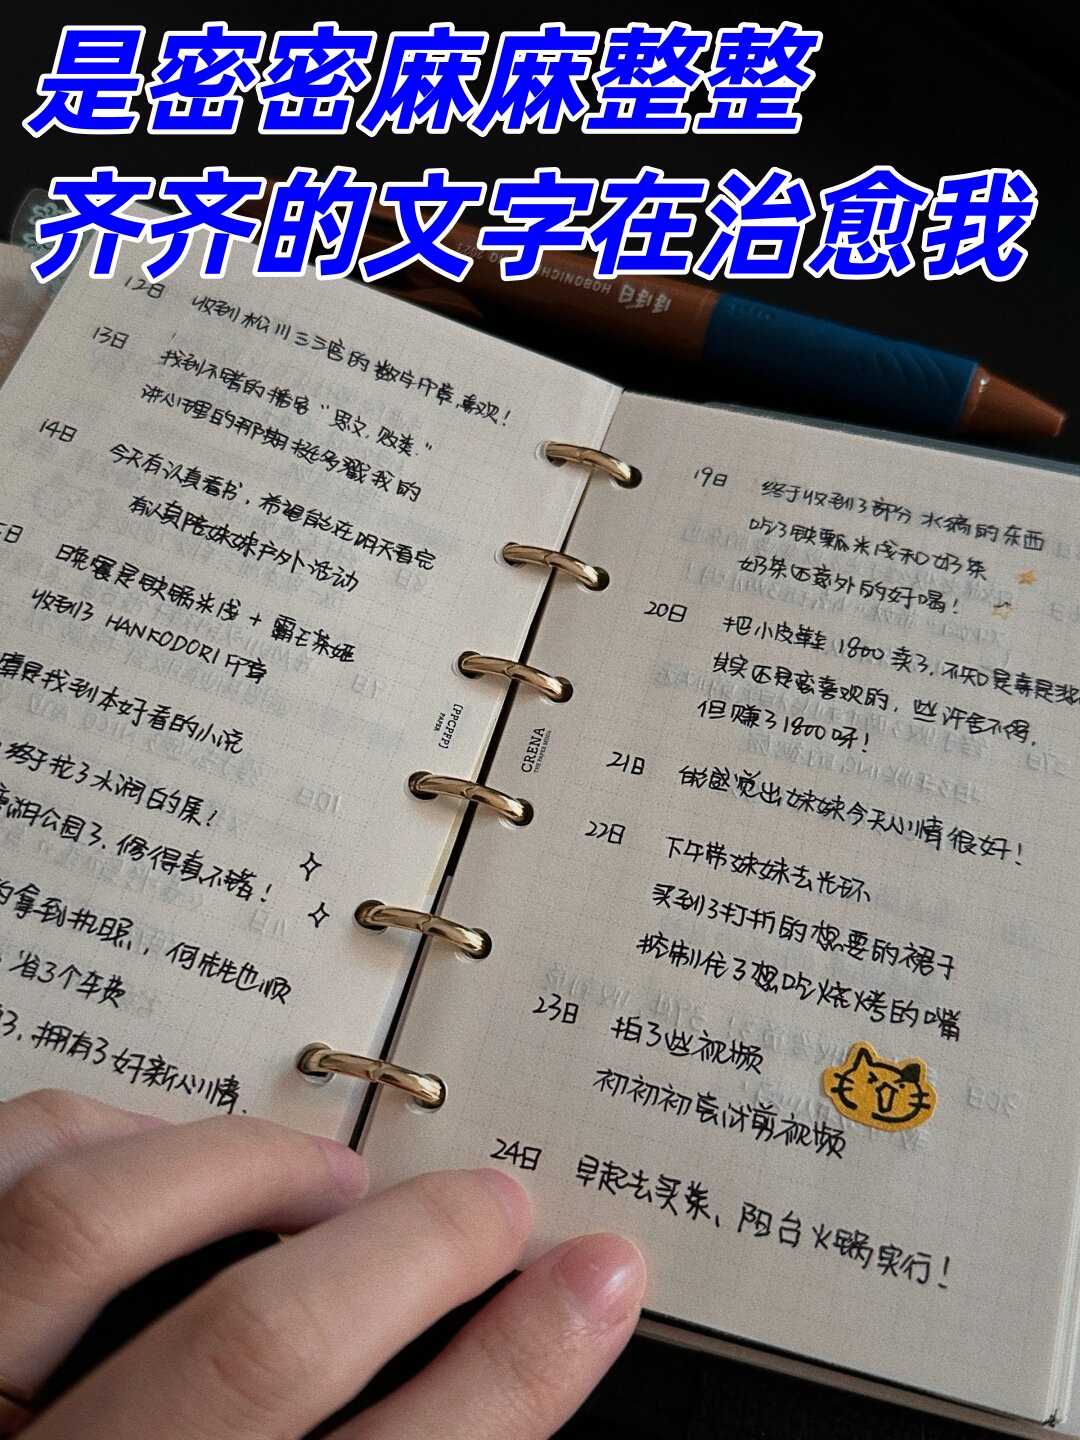 是密密麻麻整整
齐齐的文字在治愈我
HOBONICHI
12日 收到松川三ろ宫的数字印章,喜欢!
13日 找到不错的播客“思文,败类.”
讲心理的那期挺多戳我的
14日 今天有认真看书,希望能在明天看完
有认真陪妹妹户外活动
日 晚餐是映锅米线 + 霸王茶姬
收到了 HANKODORI 印章
是找到本好看的小说
终于挖了水润白的屎!
湖公园了,修得真不错!
拿到执照,何先也顺
省了个车费
了,拥有了好新心情.
[PPCPFP]
PAPER
CRENA
19日 终于收到了部分水滴的东西
吃了映瓢米线和奶茶
奶茶还意外的好喝!
20日 把小皮鞋 1800 卖了,不知是喜是
其实还是蛮喜欢的,些许舍不得,
但赚了1800呀!
21日 能感觉出妹妹今天心情很好!
22日 下午带妹妹去光环、
买到了打折的想要的裙子
控制住了想吃烧烤的嘴
23日 拍了些视频
初初初尝试剪视频
24日 早起去买菜、阳台火锅实行!